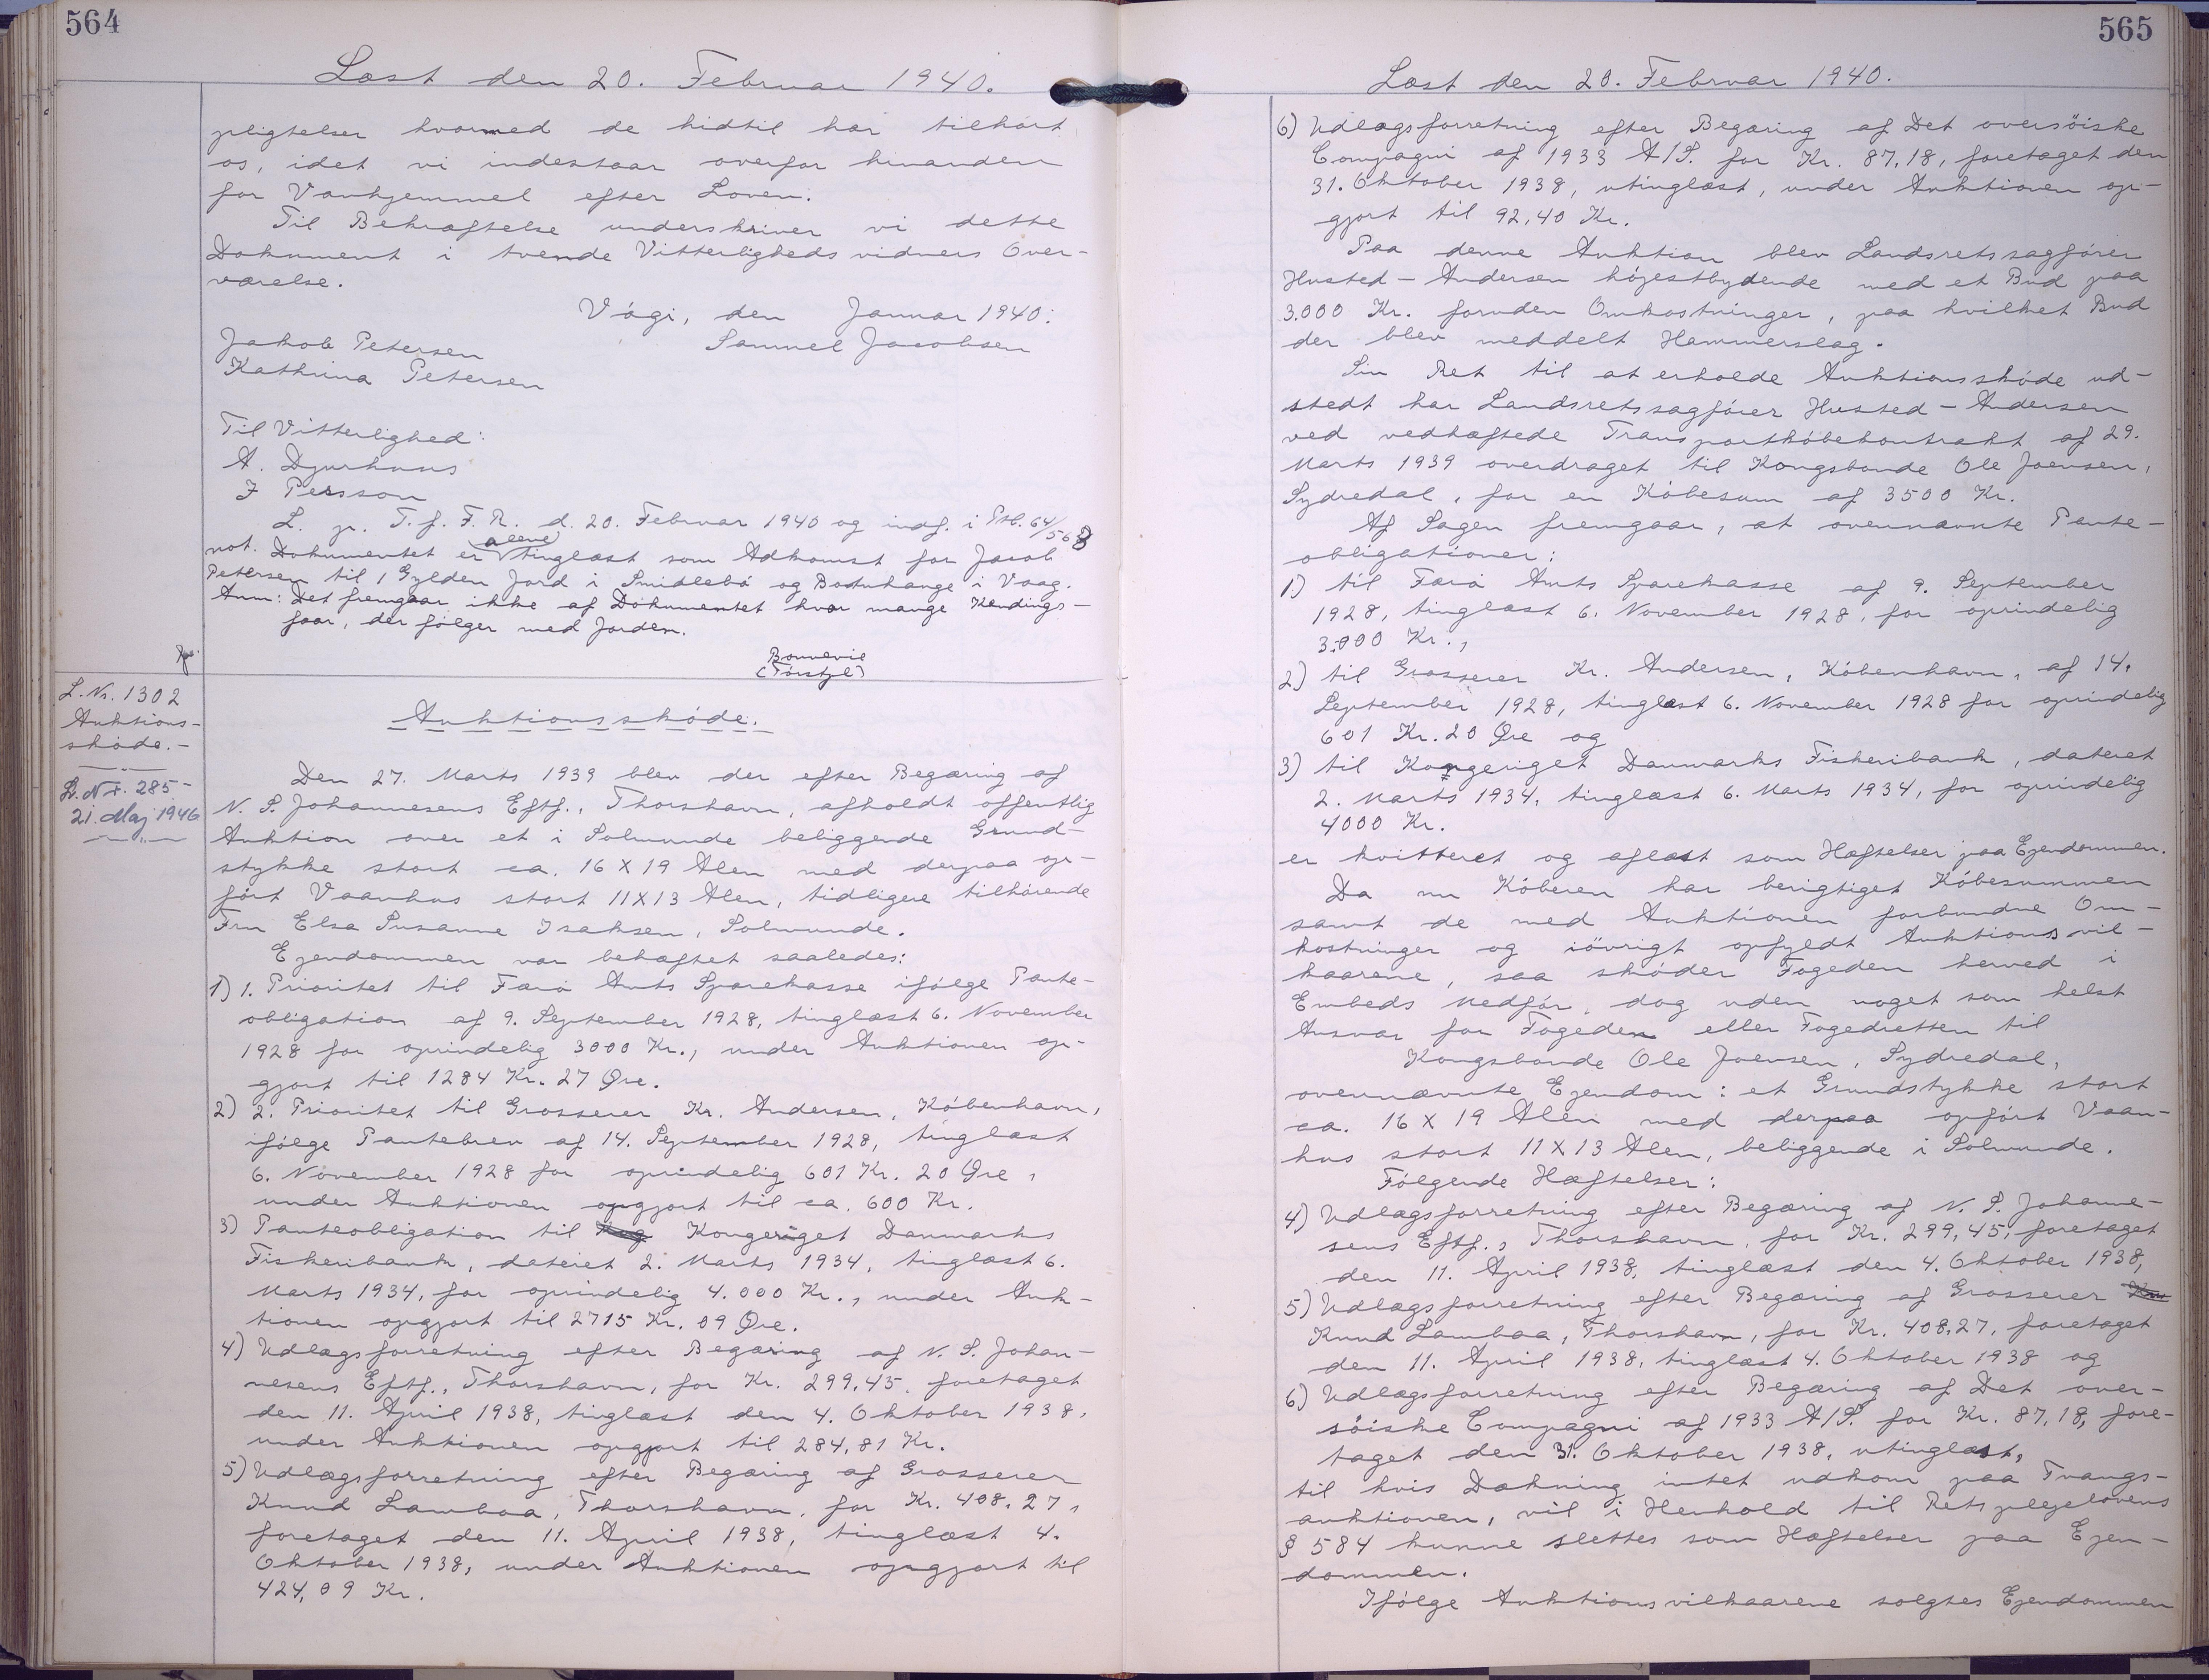 564
Læst den 20. Februar 1940.
pligtelser hvormed de hidtil har tilhørt
os, idet vi indestaar overfor hinanden
for Vanhjemmel efter Loven.
Til Bekræftelse underskriver vi dette
Dokument i tvende Vitterligheds vidners Over-
værelse.
Vági, den Januar 1940:
Jakob Petersen Samuel Jacobsen
Kathrina Petersen
Til Vitterlighed:
A. Djurhuus
J Persson
L. p. T. f. F. R. d. 20. Februar 1940 og indf. i Ptb. 64/563
not. Dokumentet er alene tinglæst som Adkomst for Jacob
Petersen til 1 Gylden Jord i Smidlebø og Bøtuhauge i Vaag.
Anm: Det fremgaar ikke af Dokumentet hvor mange Kendings-
faar, der følger med Jorden.
Bonnevie
(Tórstfl)
L. Nr. 1302
Auktions-
skøde.-
L. Nr. 285-
21. Maj 1946
Auktionsskøde.
Den 27. Marts 1939 blev der efter Begæring af
N. P. Johannesens Eftf., Thorshavn, afholdt offentlig
Auktion over et i Solmunde beliggende Grund-
stykke stort ca. 16 X 19 Alen med derpaa op-
ført Vaanhus stort 11X13 Alen, tidligere tilhørende
Fru Elsa Susanne Isaksen, Solmunde.
Ejendommen var behæftet saaledes:
1) 1. Prioritet til Færø Amts Sparekasse ifølge Pante-
obligation af 9. September 1928, tinglæst 6. November
1928 for oprindelig 3000 Kr., under Auktionen op-
gjort til 1284 Kr. 27 Øre.
2) 2. Prioritet til Grosserer Kr. Andersen, København,
ifølge Pantebrev af 14. September 1928, tinglæst
6. November 1928 for oprindelig 601 Kr. 20 Øre,
under Auktionen opgjort til ca. 600 Kr.
3) Panteobligation til Kongeriget Danmarks
Fiskeribank, dateret 2. Marts 1934, tinglæst 6.
Marts 1934, for oprindelig 4.000 Kr., under Auk-
tionen opgjort til 2715 Kr. 09 Øre.
4) Udlægsforretning efter Begæring af N. P. Johan-
nesens Eftf., Thorshavn, for Kr. 299,45, foretaget
den 11. April 1938, tinglæst den 4. Oktober 1938,
under Auktionen opgjort til 284,81 Kr.
5) Udlægsforretning efter Begæring af Grosserer
Knud Lamboa, Thorshavn, for Kr. 408,27,
foretaget den 11. April 1938, tinglæst 4.
Oktober 1938, under Auktionen opgjort til
424,09 Kr.
565
Læst den 20. Februar 1940.
6) Udlægsforretning efter Begæring af Det oversøiske
Compagni af 1933 A/S. for Kr. 87,18, foretaget den
31. Oktober 1938, utinglæst, under Auktionen op-
gjort til 92,40 Kr.
Paa denne Auktion blev Landsretssagfører
Husted-Andersen højestbydende med et Bud paa
3.000 Kr. foruden Omkostninger, paa hvilket Bud
der blev meddelt Hammerslag.
Sin Ret til at erholde Auktionsskøde ud-
stedt har Landsretssagfører Husted-Andersen
ved vedhæftede Transportkøbekontrakt af 29.
Marts 1939 overdraget til Kongsbonde Ole Joensen,
Sydredal, for en Købesum af 3500 Kr.
Af Sagen fremgaar, at ovennævnte Pante-
obligationer:
1) til Færø Amts Sparekasse af 9. September
1928, tinglæst 6. November 1928, for oprindelig
3.000 Kr.,
2) til Grosserer Kr. Andersen, København, af 14.
September 1928, tinglæst 6. November 1928 for oprindelig
601 Kr. 20 Øre og
3) til Kongeriget Danmarks Fiskeribank, dateret
2. Marts 1934, tinglæst 6. Marts 1934, for oprindelig
4000 Kr.
er kvitteret og aflæst som Hæftelser paa Ejendommen.
Da nu Køberen har berigtiget Købesummen
samt de med Auktionen forbundne Om-
kostninger og iøvrigt opfyldt Auktionsvil-
kaarene, saa skøder Fogeden herved i
Embeds Medfør, dog uden noget som helst
Ansvar for Fogeden eller Fogedretten til
Kongsbonde Ole Joensen, Sydredal,
ovennævnte Ejendom: et Grundstykke stort
ca. 16 X 19 Alen med derpaa opført Vaan-
hus stort 11X13 Alen, beliggende i Solmunde.
Følgende Hæftelser:
4) Udlægsforretning efter Begæring af N. P. Johanne-
sens Eftf., Thorshavn, for Kr. 299,45, foretaget
den 11. April 1938, tinglæst den 4. Oktober 1938,
5) Udlægsforretning efter Begæring af Grosserer Knu
Knud Lamboa, Thorshavn, for Kr. 408,27, foretaget
den 11. April 1938, tinglæst 4. Oktober 1938 og
6) Udlægsforretning efter Begæring af Det over-
søiske Compagni af 1933 A/S. for Kr. 87,18, fore-
taget den 31. Oktober 1938, utinglæst,
til hvis Dækning intet udkom paa Tvangs-
auktionen, vil i Henhold til Retsplejelovens
§ 584 kunne slettes som Hæftelser paa Ejen-
dommen.
Ifølge Auktionsvilkaarene solgtes Ejendommen